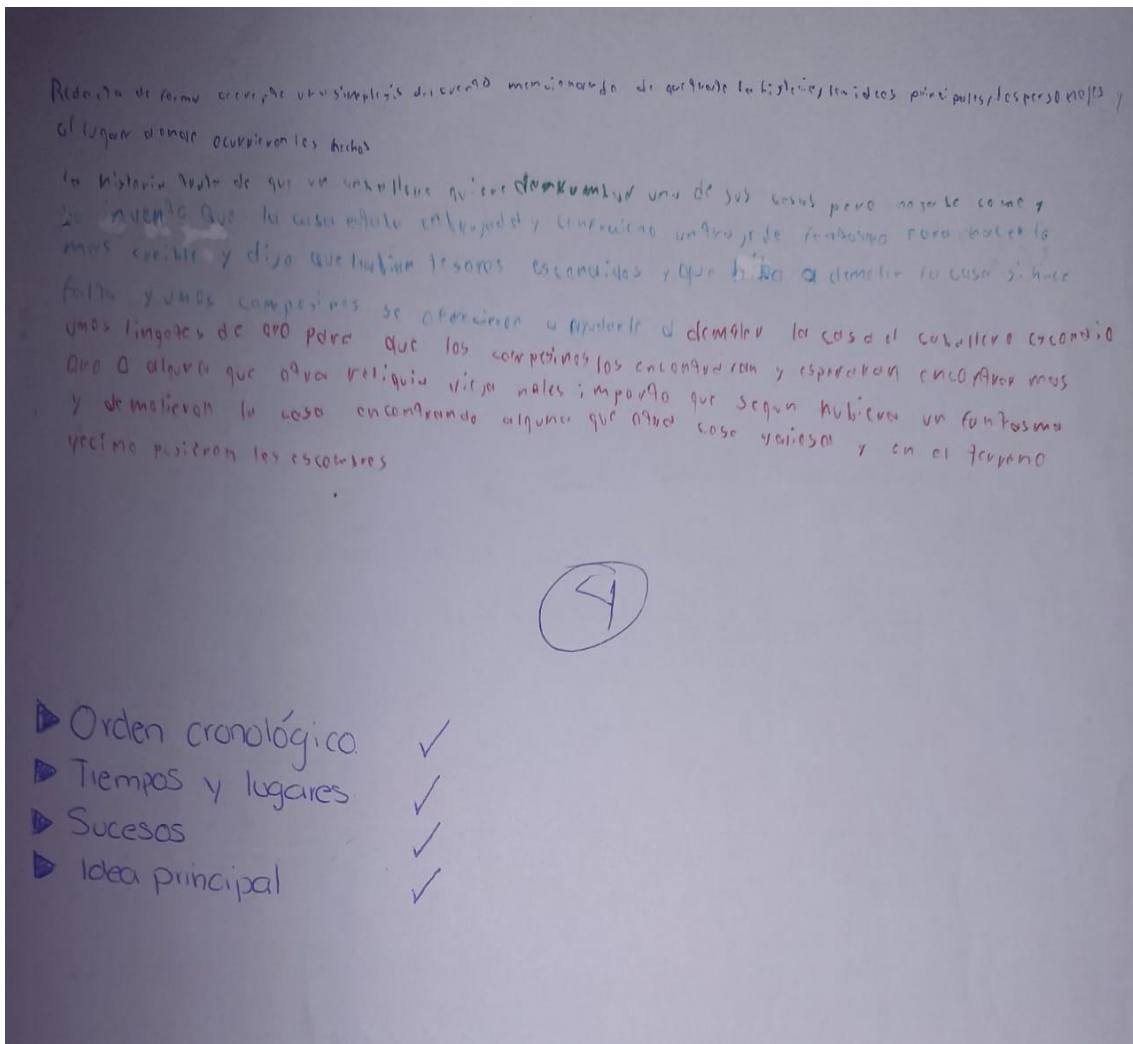 Redacta de forma coerente una simplesis del cuento mencionando de que trate la historia, las ideas principales, los personajes y
el lugar donde ocurrieron los hechos
la historia trata de que un caballero quiere derrumbar una de sus casas pero no sabe como y
se inventa que la casa estaba embrujada y un traje de fantasma para hacerlo
mas creible y dijo que habian tesoros escondidos y que hiba a demoler la casa si hace
falta y unos campesinos se ofrecieron a ayudarle a demoler la casa el caballero escondio
unos lingotes de oro para que los campesinos los encontraran y esperaran encontrar mas
oro o alguna que otra reliquia vieja no les importo que segun hubiera un fantasma
y demolieron la casa encontrando alguna que otra cosa valiosa y en el terreno
vecino pusieron los escombros
4
Orden cronológico. ✓
Tiempos y lugares ✓
Sucesos ✓
Idea principal ✓